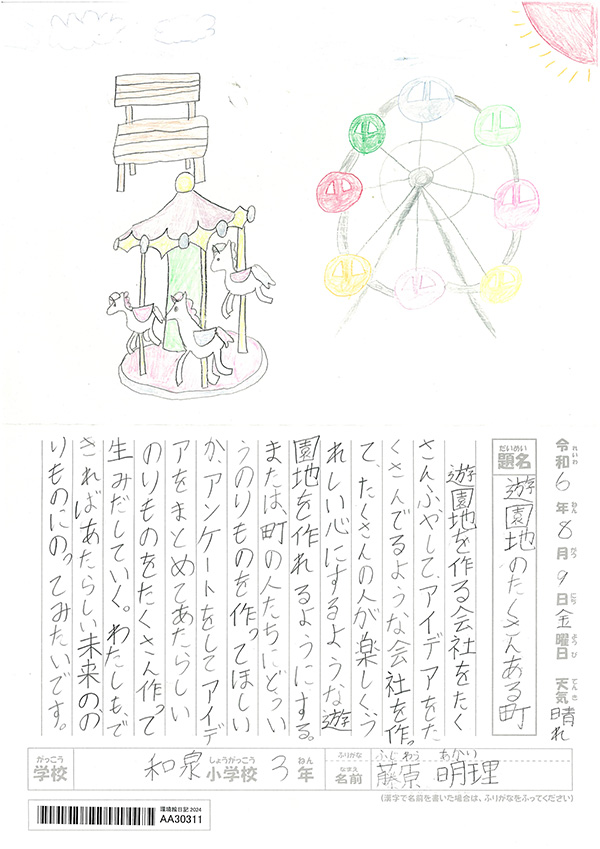 令和6年8月9日金曜日 天気晴れ
れいわ ねん がつ にち ようび てんき
だいめい
題名 遊園地のたくさんある町
遊園地を作る会社をたく
さんふやして、アイデアをた
くさんでるような会社を作っ
て、たくさんの人が楽しく、う
れしい心にするような遊
園地を作れるようにする。
または、町の人たちにどうい
うのりものを作ってほしい
か、アンケートをしてアイデ
アをまとめてあたらしい
のりものをたくさん作って
生みだしていく。わたしもで
きればあたらしい未来のの
りものにのってみたいです。
がっこう しょうがっこう ねん ふりがな ふじわら あかり
学校 和泉小学校 3年 なまえ 名前 藤原 明理
(漢字で名前を書いた場合は、ふりがなをふってください)
環境絵日記2024
AA30311